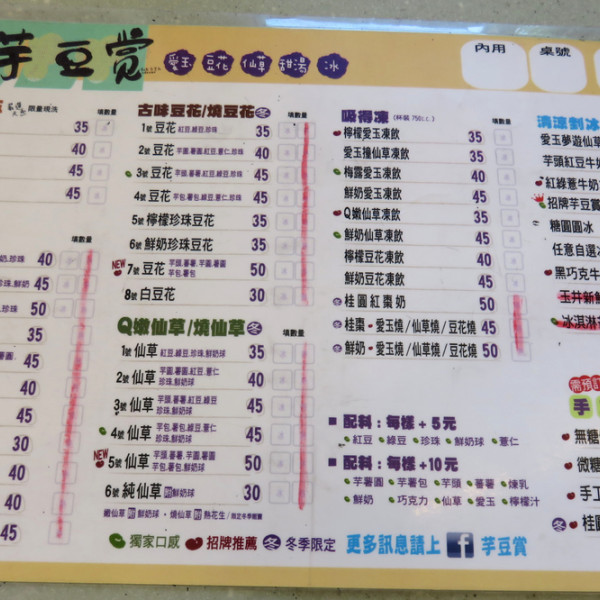 芋豆賞 愛玉 豆花 仙草 甜湯 冰
內用 桌號
限量現洗 填數量
35
40
45
45
填數量
40
45
50
45
35
45
30
40
40
45
古味豆花/燒豆花 冬 填數量
1號 豆花 紅豆,綠豆,珍珠 35
2號 豆花 芋頭,薯圓,紅豆,薏仁,珍珠 40
3號 豆花 芋頭,蕃薯,紅豆,綠豆,珍珠 45
4號 豆花 芋包,薯包,綠豆,薏仁,珍珠 45
5號 檸檬珍珠豆花 35
6號 鮮奶珍珠豆花 35
NEW 7號 豆花 芋頭,蕃薯,芋圓,薯圓 芋包,薯包 50
8號 白豆花 30
Q嫩仙草/燒仙草 冬 填數量
1號 仙草 紅豆,綠豆,珍珠,鮮奶球 35
2號 仙草 芋頭,薯圓,紅豆,薏仁
珍珠,鮮奶球 40
3號 仙草 芋頭,蕃薯,紅豆,綠豆
珍珠,鮮奶球 45
4號 仙草 芋包,薯包,綠豆,薏仁
珍珠,鮮奶球 45
NEW 5號 仙草 芋頭,蕃薯,芋圓,薯圓
芋包,薯包,鮮奶球 50
6號 純仙草 附鮮奶球 30
嫩仙草附鮮奶球・燒仙草附熱花生/限定冬季暖賣
獨家口感 招牌推薦 冬 冬季限定
吸得凍 (杯裝 750c.c.) 填數量
檸檬愛玉凍飲 35
愛玉撞仙草凍飲 35
梅露愛玉凍飲 40
鮮奶愛玉凍飲 45
Q嫩仙草凍飲 35
鮮奶仙草凍飲 45
檸檬豆花凍飲 40
鮮奶豆花凍飲 45
冬 桂圓紅棗奶 50
冬 桂棗・愛玉燒/仙草燒/豆花燒 45
冬 鮮奶・愛玉燒/仙草燒/豆花燒 50
■ 配料：每樣+5元
紅豆 綠豆 珍珠 鮮奶球 薏仁
■ 配料：每樣+10元
芋薯圓 芋薯包 芋頭 蕃薯 煉乳
鮮奶 巧克力 仙草 愛玉 檸檬汁
更多訊息請上 f 芋豆賞
清涼剉冰
愛玉夢遊仙草
芋頭紅豆牛
紅綠薏牛奶
招牌芋豆賞
糖圓圓冰
任意自選冰
黑巧克牛
玉井新鮮
冰淇淋
需預訂
手
無糖
微糖
手工
冬 桂圓